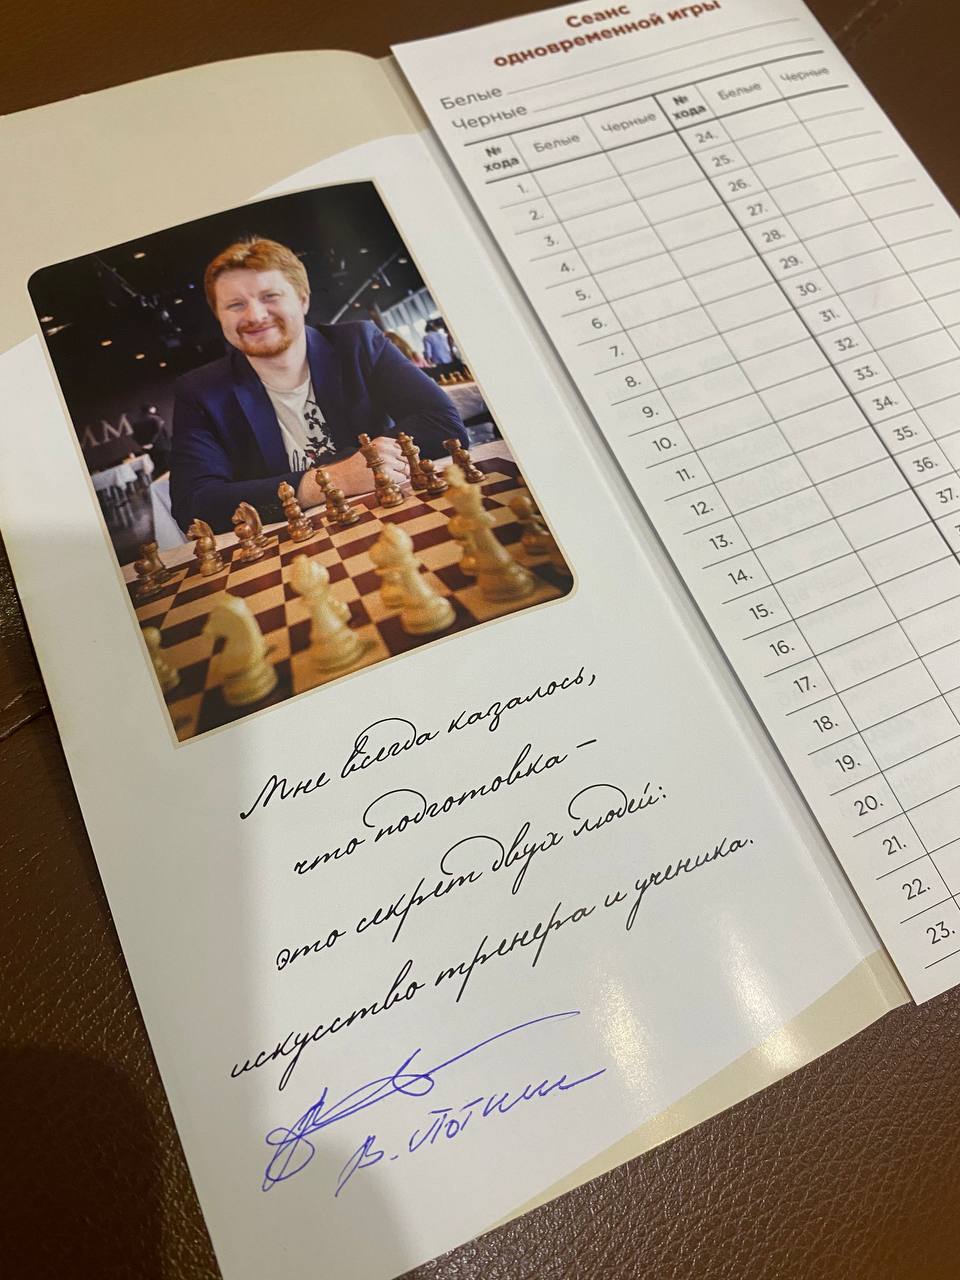 Мне всегда казалось,
что подготовка –
это секрет двух людей:
искусство тренера и ученика.
В. Поткин
Сеанс
одновременной игры
Белые
Черные
№ хода Белые Черные № хода Белые Черные
1. 24.
2. 25.
3. 26.
4. 27.
5. 28.
6. 29.
7. 30.
8. 31.
9. 32.
10. 33.
11. 34.
12. 35.
13. 36.
14. 37.
15.
16.
17.
18.
19.
20.
21.
22.
23.